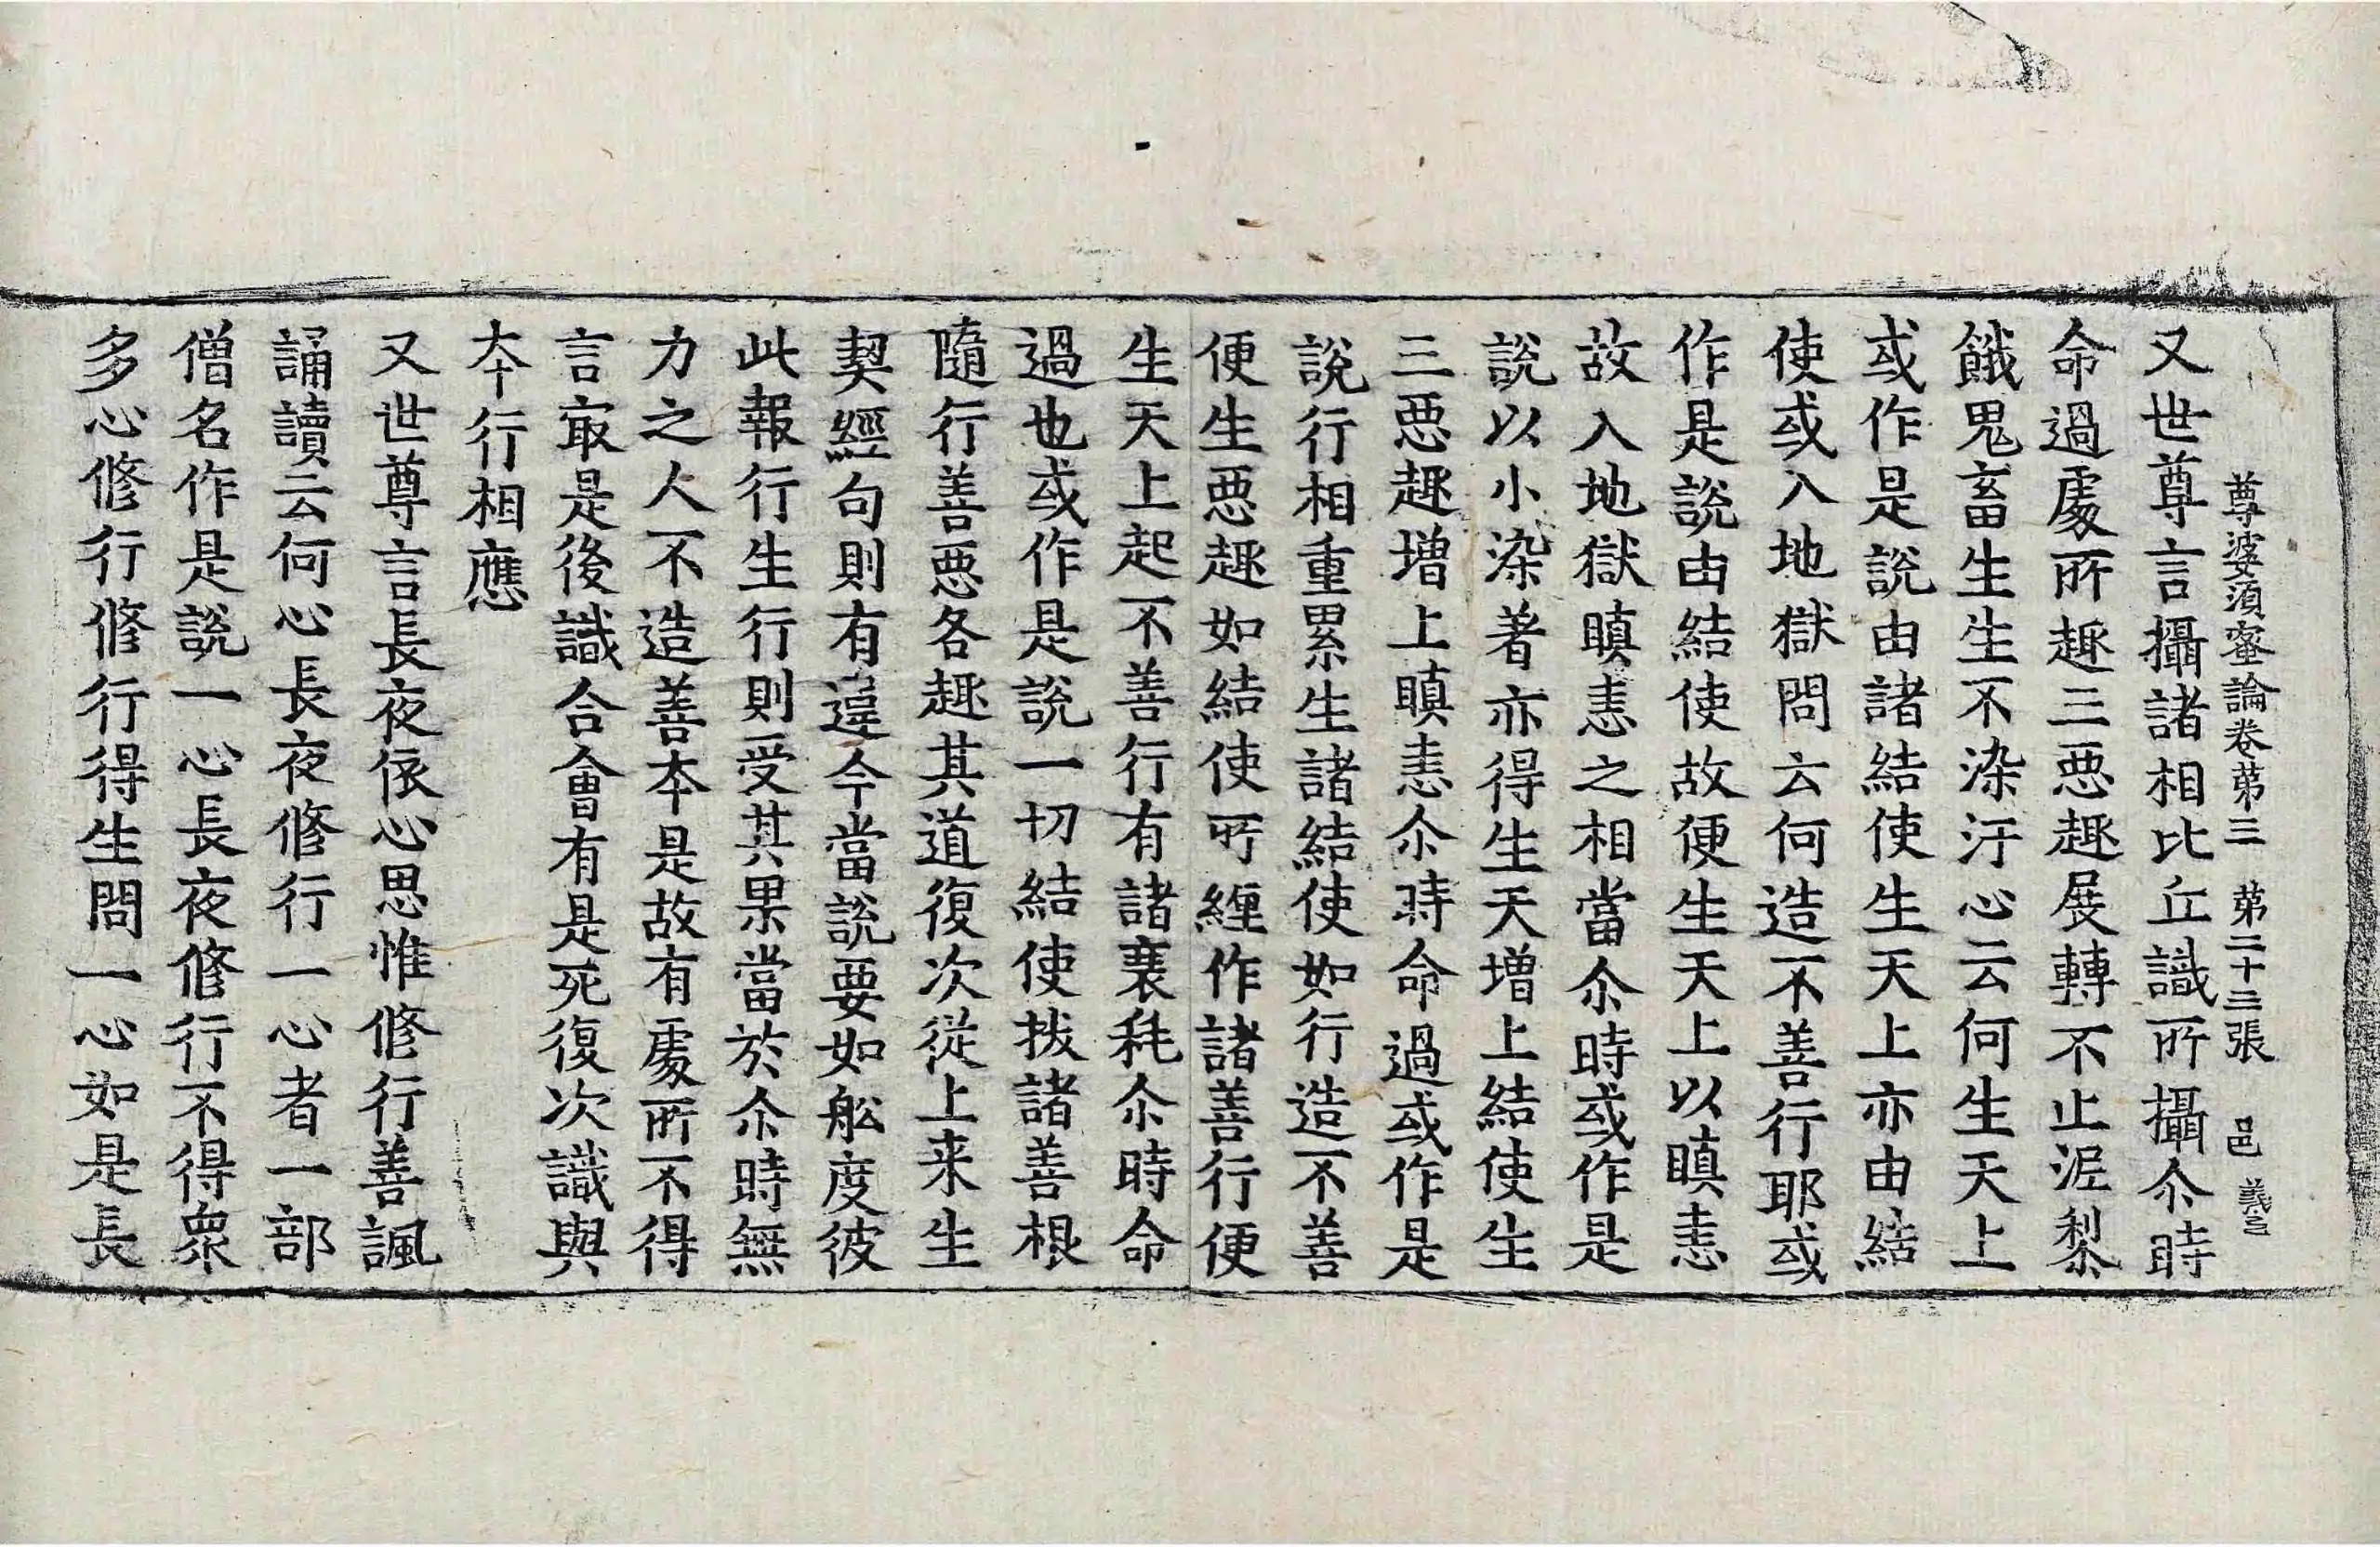 尊婆須蜜論卷苐三 苐二十三張 邑
又世尊言攝諸相比丘識所攝尒時
命過處所趣三惡趣展轉不止泥犁
餓鬼畜生生不染汙心云何生天上
或作是說由諸結使生天上亦由結
使或入地獄問云何造不善行耶或
作是說由結使故便生天上以瞋恚
故入地獄瞋恚之相當尒時或作是
說以小染著亦得生天增上結使生
三惡趣增上瞋恚尒時命過或作是
說行相重累生諸結使如行造不善
便生惡趣如結使所纏作諸善行便
生天上起不善行有諸衰耗尒時命
過也或作是說一切結使拔諸善根
隨行善惡各趣其道復次從上来生
契經句則有違今當說要如舩度彼
此報行生行則受其果當於尒時無
力之人不造善本是故有處所不得
言㝡是後識合會有是死復次識與
本行相應
又世尊言長夜依心思惟修行善諷
誦讀云何心長夜修行一心者一部
僧名作是說一心長夜修行不得衆
多心修行修行得生問一心如是長